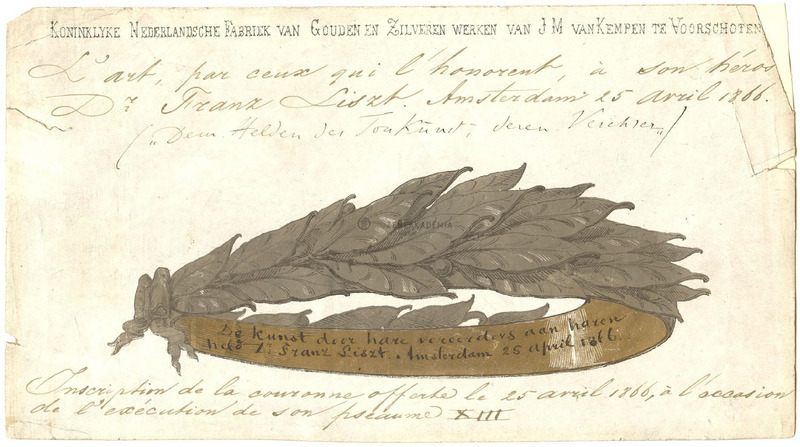 KONINKLYKE NEDERLANDSCHE FABRIEK VAN GOUDEN EN ZILVEREN WERKEN VAN J M VAN KEMPEN TE VOORSCHOTEN
L'art, par ceux qui l'honorent, à son héros
Dr Franz Liszt. Amsterdam 25 avril 1866.
(„Dem Helden der Tonkunst, deren Verehrer„)
AKADÉMIA
De kunst door hare vereerders aan haren
held Dr Franz Liszt. Amsterdam 25 april 1866.
Inscription de la couronne offerte le 25 avril 1866, à l'occasion
de l'exécution de son pseaume XIII